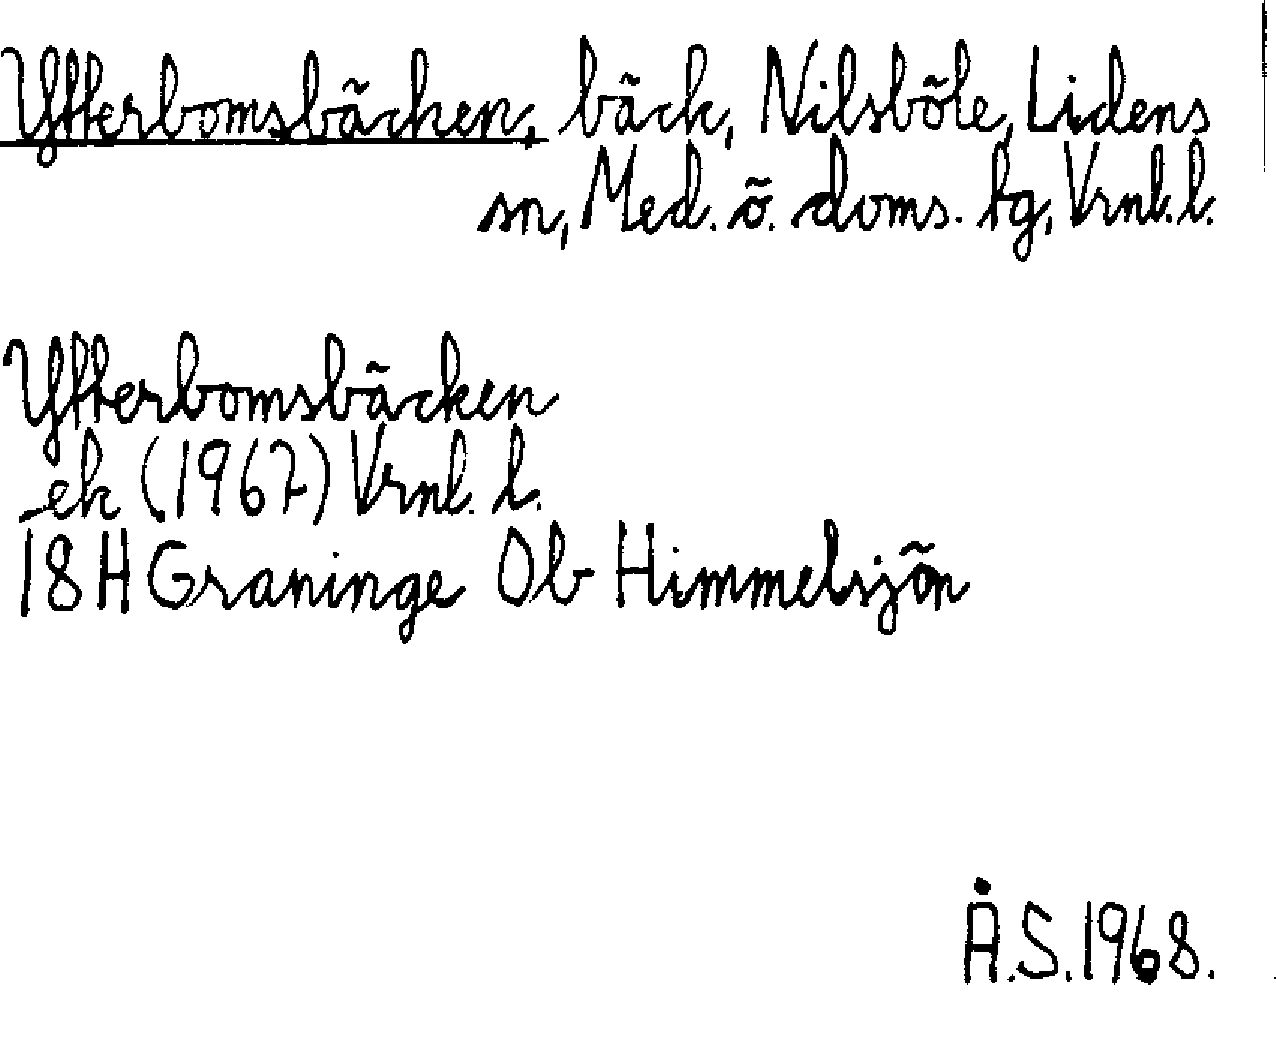 Ytterbomsbäcken, bäck, Nilsböle, Lidens
sn, Med. ö. doms. tg, Vrnl. l.
Ytterbomsbäcken
ek (1967) Vrnl. l.
18H Graninge Ob Himmelsjön
Å.S.1968.